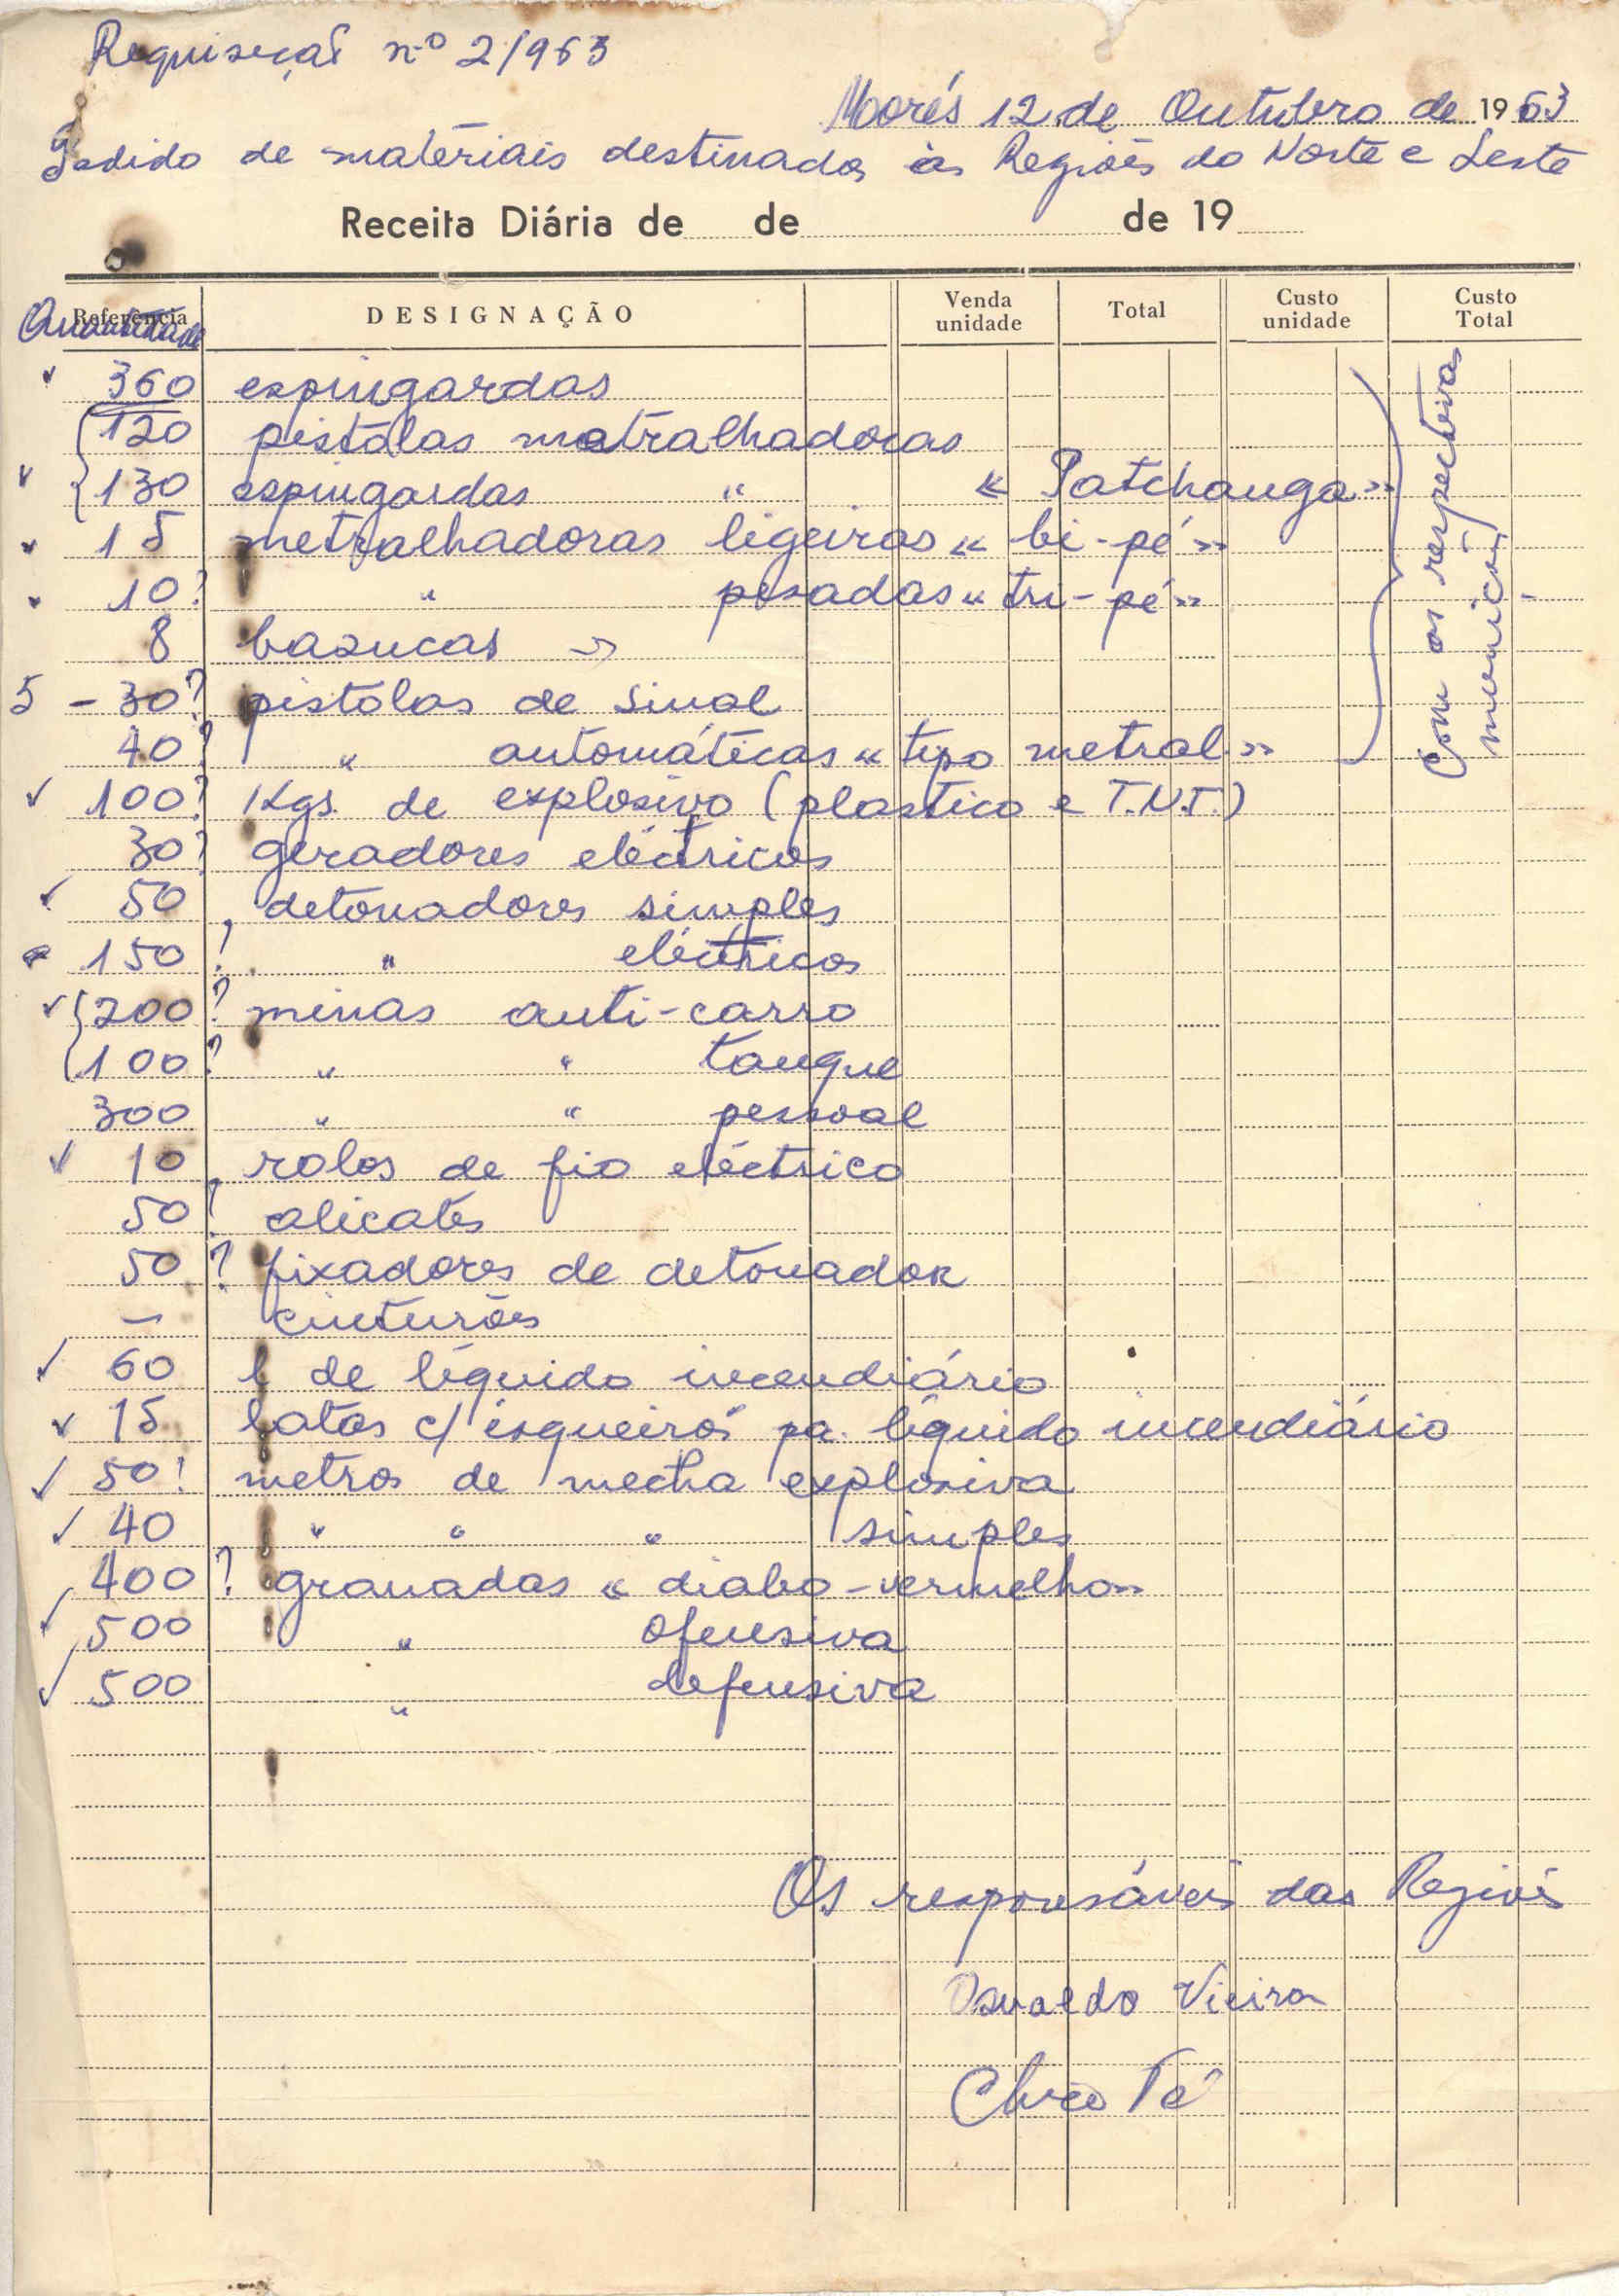 Requisição nº 2/963
Morés 12 de Outubro de 1963
Pedido de materiais destinados às Regiões do Norte e Leste
Receita Diária de de de 19
Referência
Quantidade
DESIGNAÇÃO
Venda unidade
Total
Custo unidade
Custo Total
✓ 360 espingardas
120 pistolas metralhadoras
✓ 130 espingardas " « Patchanga »
✓ 15 metralhadoras ligeiras « bi-pé »
✓ 10? " pesadas « tri-pé »
8 bazucas »
5 - 30? pistolas de sinal
40? " automáticas « tipo metral »
Com as respectivas munições
✓ 100? Kgs. de explosivo (plastico e T.N.T.)
30? geradores eléctricos
✓ 50 detonadores simples
150 ? " eléctricos
✓ 200 ? minas anti-carro
100 ? " " tanque
300 " " pessoal
✓ 10 rolos de fio eléctrico
50 ? alicates
50 ? fixadores de detonador
— cinturões
✓ 60 l de líquido incendiário
✓ 15 latas c/ isqueiros pa. líquido incendiário
✓ 50! metros de mecha explosiva
✓ 40 " " " simples
400 ? granadas « diabo-vermelho »
✓ 500 " ofensiva
✓ 500 " defensiva
Os responsáveis das Regiões
Osvaldo Vieira
Chico Té